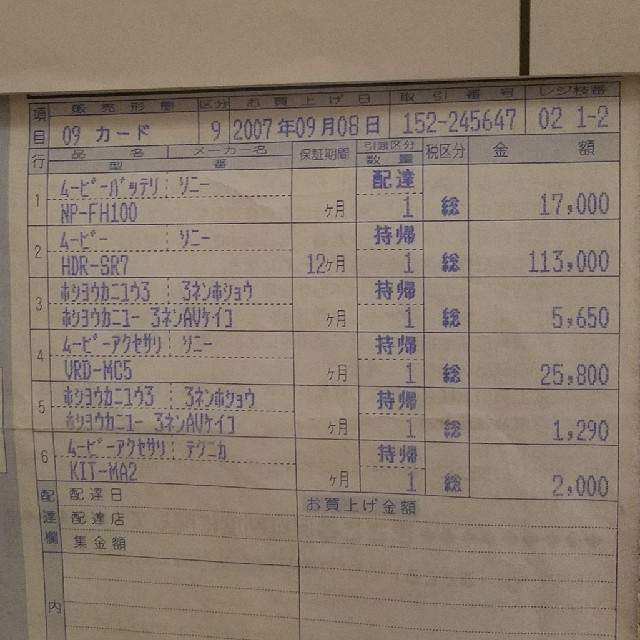 項目 販売形態 区分 お買上げ日 取引番号 レジ枝番
09 カード 9 2007年09月08日 152-245647 02 1-2
行 品名 メーカー名 保証期間 引渡区分 税区分 金額
型番 数量
1 ムービーバッテリ ソニー 配達
NP-FH100 ヶ月 1 総 17,000
2 ムービー ソニー 持帰
HDR-SR7 12ヶ月 1 総 113,000
3 ホショウカニュウ3 3ネンホショウ 持帰
ホショウカニュー 3ネンAVケイコ ヶ月 1 総 5,650
4 ムービーアクセサリ ソニー 持帰
VRD-MC5 ヶ月 1 総 25,800
5 ホショウカニュウ3 3ネンホショウ 持帰
ホショウカニュー 3ネンAVケイコ ヶ月 1 総 1,290
6 ムービーアクセサリ テクニカ 持帰
KIT-MA2 ヶ月 1 総 2,000
配達欄 配達日 お買上げ金額
配達店
集金額
内